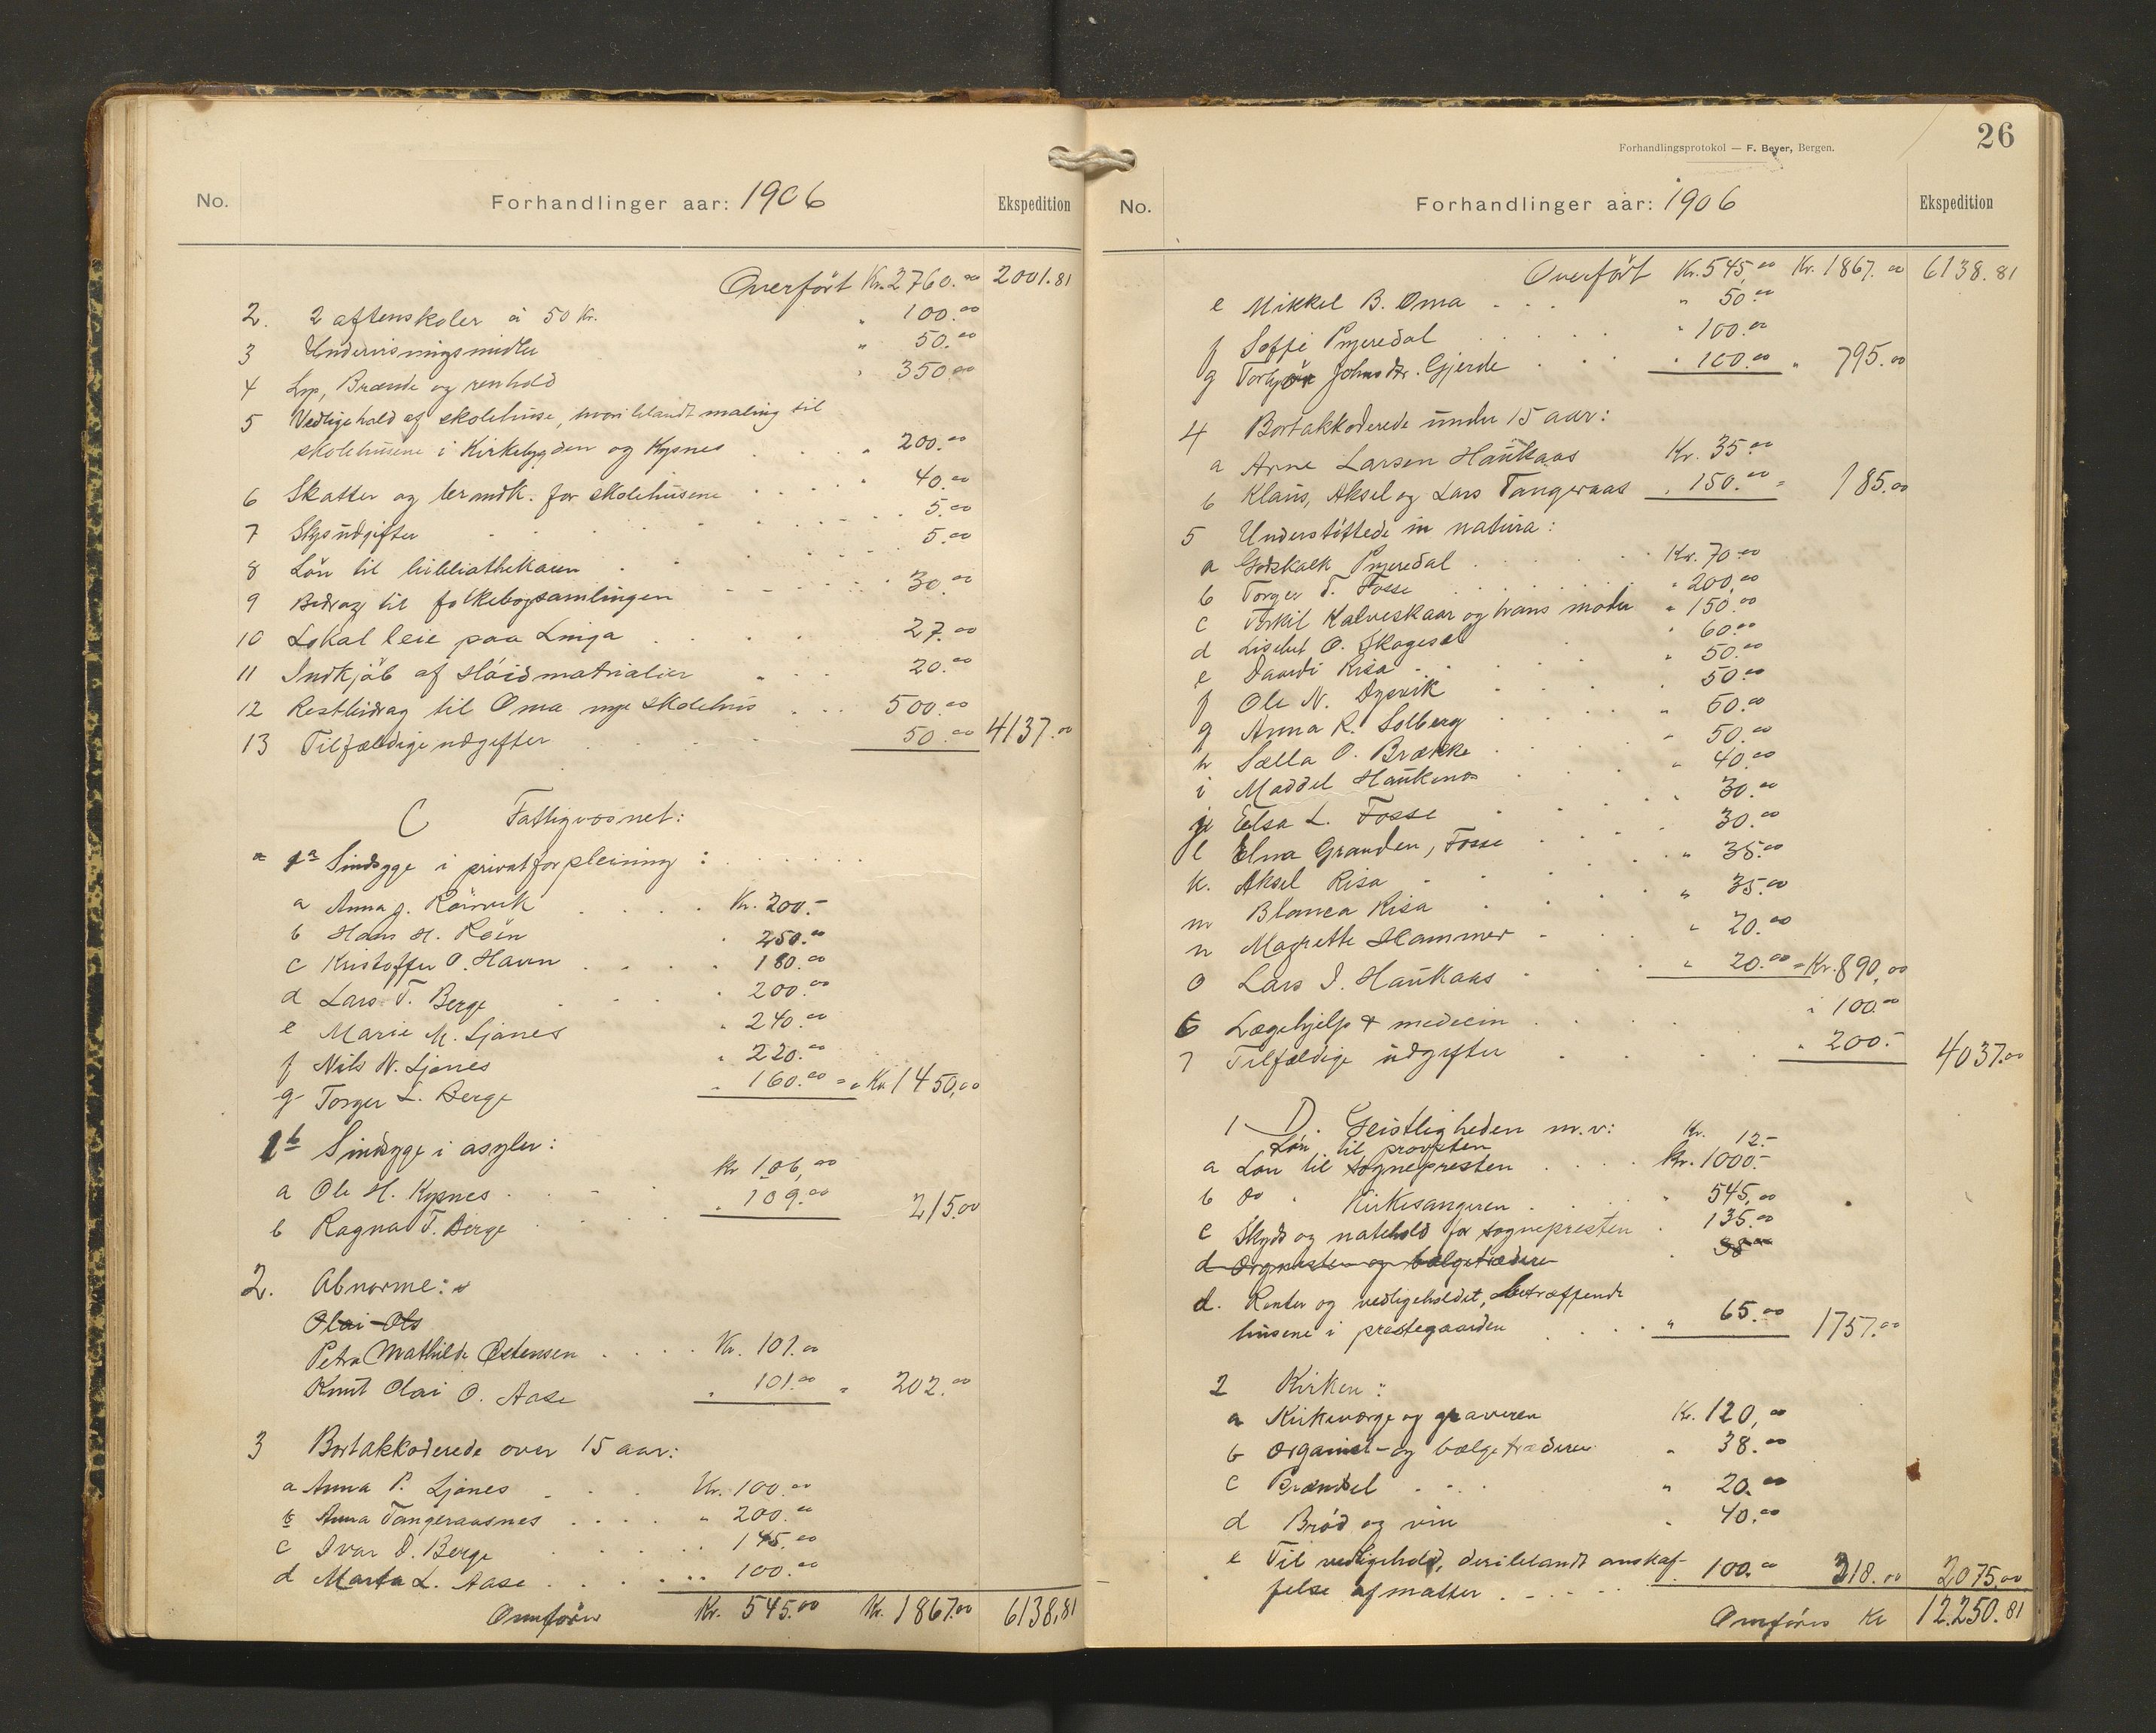 No.
Forhandlinger aar: 1906
Ekspedition
Overført Kr. 2760.00 2001.81
2. 2 aftenskoler à 50 Kr. " 100.00
3 Undervisningsmidler " 50.00
4 Lys, Brænde og renhold " 350.00
5 Vedligehold af skolehuse, hvoriblandt maling til
skolehusene i Kirkebygden og Kysnes . . " 200.00
6 Skatter og brandk. for skolehusene . . . . 40.00
7 Skysudgifter . . . . 5.00
8 Løn til bibliothekaren . . . . 5.00
9 Bidrag til folkebogsamlingen . . . . 30.00
10 Lokalleie paa Linga . . . . 27.00
11 Indkjøb af sløidmatrialier . . . 20.00
12 Restbidrag til Oma nye skolehus . . . 500.00
13 Tilfældige udgifter . . . . 50.00 4137.00
C Fattigvæsnet:
1a Sindsyge i privatforpleining : . . . . . .
a Anna J. Røinvik . . . . Kr. 200.-
b Hans H. Røin . 250.00
c Kristoffer O. Havn . . . . 180.00
d Lars T. Berge . . 200.00
e Marie M. Ljones " 240.00
f Nils N. Ljones " 220.00
g Torger L. Berge " 160.00 = Kr 1450,00
1b Sindsyge i asyler:
a Ole H. Kysnes . . . Kr 106,00
b Ragna T. Berge . . . . " 109.00 215.00
2. Abnorme:
Olai Ols
Petra Mathilde Østensen . . . . Kr. 101.00
Knut Olai O. Aase " 101.00 " 202.00
3 Bortakkoderede over 15 aar:
a Anna P. Ljones . . . Kr. 100.00
b Anna Tangeraasnes . . . . " 200.00
c Ivar I. Berge . . . . 145.00
d Marta L. Aase . . . . . " 100.00
Overføres Kr. 545.00 Kr. 1867.00 6138,81
26
Forhandlingsprotokol — F. Beyer, Bergen.
No.
Forhandlinger aar: 1906
Ekspedition
Overført Kr. 545,00 Kr. 1867.00 6138.81
e Mikkel B. Oma . . . " 50.00
f Soffi . . . . " 100.00
g Johnsdtr. Gjerde . . . " 100.00 " 795.00
4 Bortakkoderede under 15 aar:
a Arne Larsen Haukaas Kr. 35.00
b Klaus, Aksel og Lars Tangeraas " 150.00 = 185.00
5 Understøttede in natura:
a Godskalk . . . . Kr. 70.00
b Torger T. Fosse . . . . " 200.00
c Torkil Kalveskaar og hans moder " 150.00
d Lisebet O. Skogesæl " 60.00
e Daardi Risa . . . . " 50.00
f Ole N. Dysvik . . . . 50.00
g Anna R. Solberg . . . . " 50.00
h Sælla O. Brække . . . . " 50.00
i Maddel Haukenæs . . . . " 40.00
j Elsa L. Fosse . . . . " 30.00
l Elna Granden, Fosse . . . . 30.00
k. Aksel Risa . . . . " 35.00
m Blanca Risa . . . . " 35.00
n Magrette Hammer . . . " 20.00
o Lars I. Haukaas . . . " 20.00 = Kr. 890,00
6 Lægehjelp & medecin . . . . " 100.00
7 Tilfældige udgifter . . . . " 200.- 4037.00
1 D. Geistligheden m.v:
Løn til provsten Kr. 12.-
a Løn til sognepresten . . . . Kr. 1000.-
b Do " Kirkesangeren . . . " 545,00
c Skyds og natehold for sognepresten . 135.00
d Organisten og bælgetræderen . 38.00
d. Renter og vedligeholdet, betræffende
husene i prestegaarden . . . . " 65.00 1757.00
2 Kirken:
a Kirkeværge og graveren Kr. 120,00
b Organist- og bælgetræderen " 38.00
c Brændsel . . . . " 20.00
d Brød og vin " 40.00
e Til vedligehold, deriblandt anskaf-
felse af matter . . . . 100.00 318.00 2075.00
Overføres Kr 12.250.81